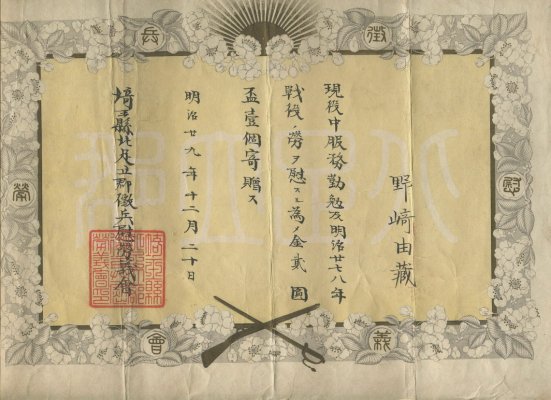 徴兵
慰勞
義會
野﨑由藏
現役中服務勤勉及明治廿七八年
戦役ノ勞ヲ慰スル為メ金貳圓
盃壹個寄贈ス
明治廿九年十二月二十日
埼玉縣北足立郡徴兵慰勞義會